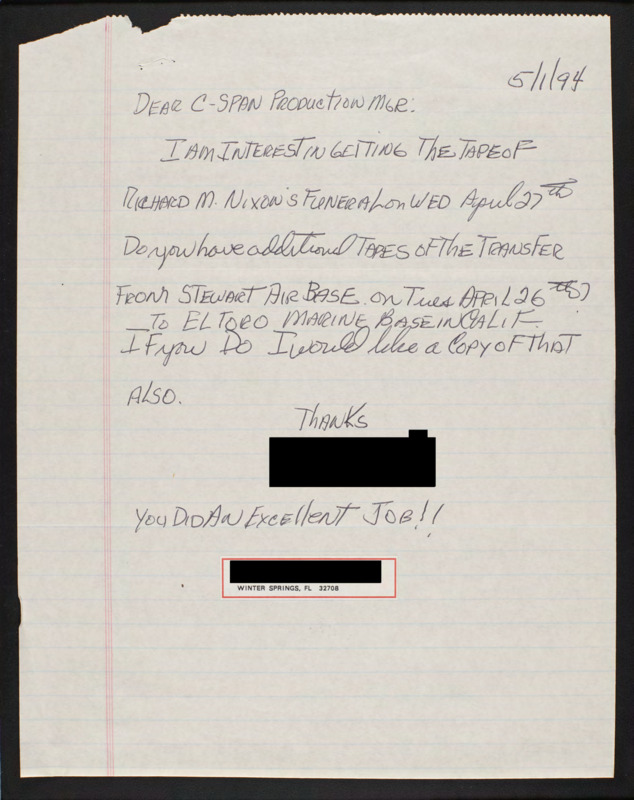 5/1/94
DEAR C-SPAN PRODUCTION MGR:
I AM INTEREST IN GETTING THE TAPE OF
RICHARD M. NIXON'S FUNERAL on WED April 27th
Do you have additional TAPES OF THE TRANSFER
FROM STEWART AIR BASE on Tues APRIL 26th?
TO EL TORO MARINE BASE IN CALIF.
IF you Do I would like a COPY OF THAT
ALSO.
THANKS
YOU DID AN Excellent JOB!!
WINTER SPRINGS, FL 32708